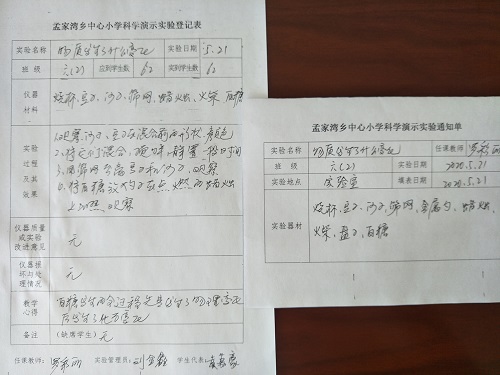 孟家湾乡中心小学科学演示实验登记表
实验名称 物质发生了什么变化 实验日期 5.21
班级 六(2) 应到学生数 62 实到学生数 62
仪器材料 烧杯、豆子、沙子、筛网、蜡烛、火柴、白糖
实验过程及其效果
1.观察沙子、豆子在混合前的形状、颜色
2.将它们混合、搅拌、静置一段时间
3.用筛网分离豆子和沙子、观察
4.将白糖放 在点燃的蜡烛
上加热、观察
仪器质量或实验技进意见 无
仪器损坏与处理情况 无
教学心得
白糖 变化的过程是先发生了物理变化
后发生了化学变化
备注 (缺席学生) 无
任课教师: 实验管理员: 学生代表:
孟家湾乡中心小学科学演示实验通知单
实验名称 物质发生了什么变化 任课教师
班级 六(2) 实验日期 2020.5.21
实验地点 实验室 填表日期 2020.5.21
实验器材
烧杯、豆子、沙子、筛网、金属勺、蜡烛
火柴、盘子、白糖